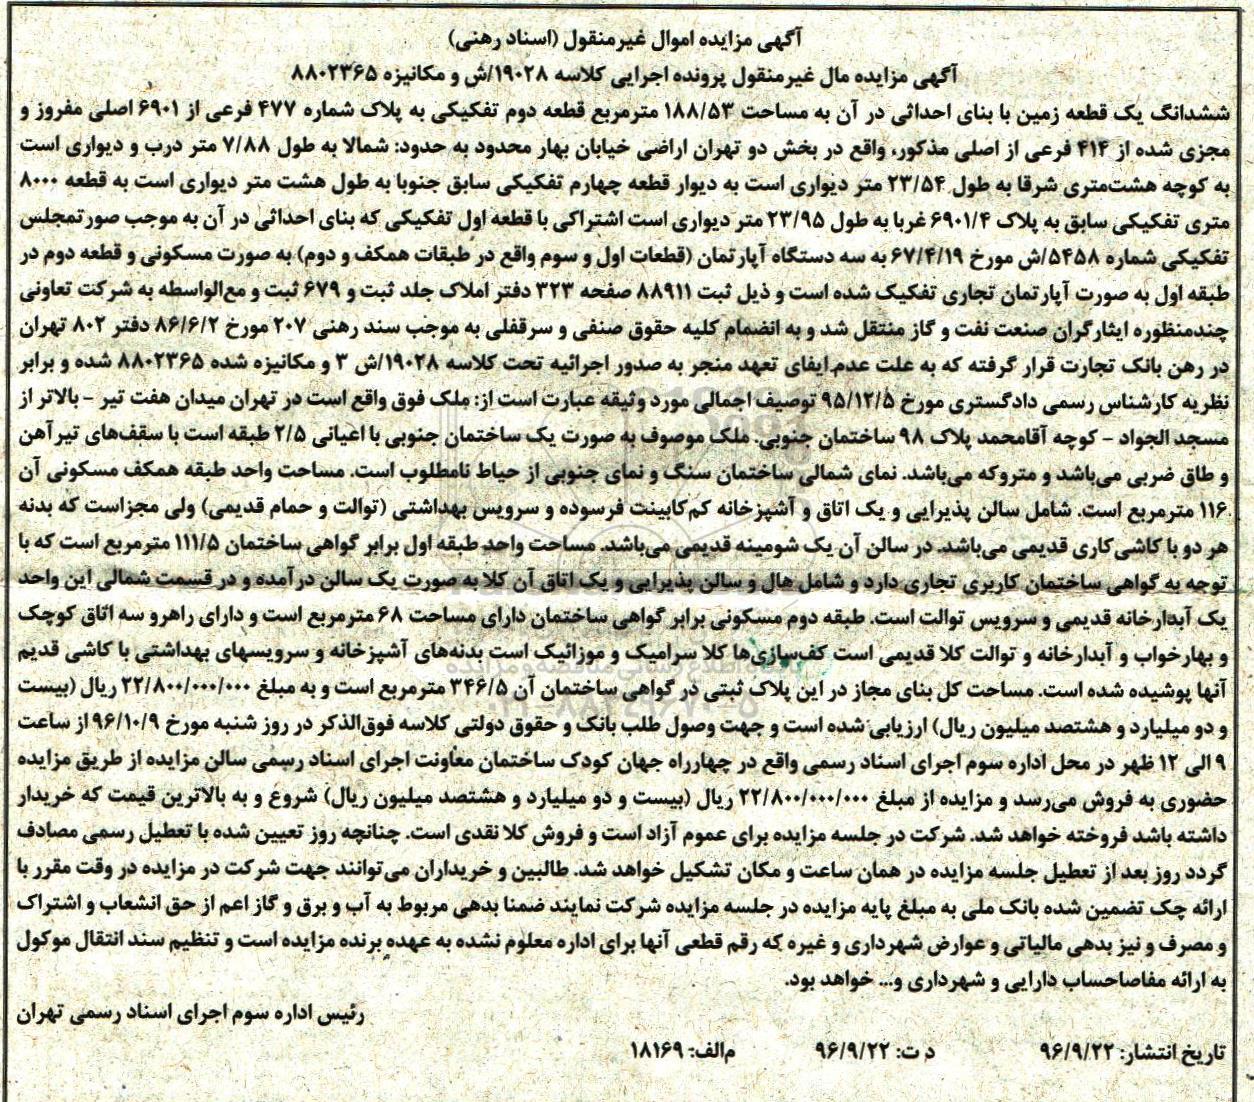 آگهی مزایده اموال غیرمنقول (اسناد رهنی)
آگهی مزایده مال غیرمنقول پرونده اجرایی کلاسه ۱۹۰۲۸/ش و مکانیزه ۸۸۰۲۳۶۵
ششدانگ یک قطعه زمین با بنای احداثی در آن به مساحت ۱۸۸/۵۳ مترمربع قطعه دوم تفکیکی به پلاک شماره ۴۷۷ فرعی از ۶۹۰۱ اصلی مفروز و
مجزی شده از ۴۱۴ فرعی از اصلی مذکور، واقع در بخش دو تهران اراضی خیابان بهار محدود به حدود: شمالا به طول ۷/۸۸ متر درب و دیواری است
به کوچه هشت‌متری شرقا به طول ۲۳/۵۴ متر دیواری است به دیوار قطعه چهارم تفکیکی سابق جنوبا به طول هشت متر دیواری است به قطعه ۸۰۰۰
متری تفکیکی سابق به پلاک ۶۹۰۱/۴ غربا به طول ۲۳/۹۵ متر دیواری است اشتراکی با قطعه اول تفکیکی که بنای احداثی در آن به موجب صورتمجلس
تفکیکی شماره ۵۴۵۸/ش مورخ ۶۷/۴/۱۹ به سه دستگاه آپارتمان (قطعات اول و سوم واقع در طبقات همکف و دوم) به صورت مسکونی و قطعه دوم در
طبقه اول به صورت آپارتمان تجاری تفکیک شده است و ذیل ثبت ۸۸۹۱۱ صفحه ۳۲۳ دفتر املاک جلد ثبت و ۶۷۹ ثبت و مع‌الواسطه به شرکت تعاونی
چندمنظوره ایثارگران صنعت نفت و گاز منتقل شد و به انضمام کلیه حقوق صنفی و سرقفلی به موجب سند رهنی ۲۰۷ مورخ ۸۶/۶/۲ دفتر ۸۰۲ تهران
در رهن بانک تجارت قرار گرفته که به علت عدم ایفای تعهد منجر به صدور اجرائیه تحت کلاسه ۱۹۰۲۸/ش ۳ و مکانیزه شده ۸۸۰۲۳۶۵ شده و برابر
نظریه کارشناس رسمی دادگستری مورخ ۹۵/۱۲/۵ توصیف اجمالی مورد وثیقه عبارت است از: ملک فوق واقع است در تهران میدان هفت تیر – بالاتر از
مسجد الجواد – کوچه آقامحمد پلاک ۹۸ ساختمان جنوبی. ملک موصوف به صورت یک ساختمان جنوبی با اعیانی ۲/۵ طبقه است با سقف‌های تیرآهن
و طاق ضربی می‌باشد و متروکه می‌باشد. نمای شمالی ساختمان سنگ و نمای جنوبی از حیاط نامطلوب است. مساحت واحد طبقه همکف مسکونی آن
۱۱۶ مترمربع است. شامل سالن پذیرایی و یک اتاق و آشپزخانه کم‌کابینت فرسوده و سرویس بهداشتی (توالت و حمام قدیمی) ولی مجزاست که بدنه
هر دو با کاشی‌کاری قدیمی می‌باشد. در سالن آن یک شومینه قدیمی می‌باشد. مساحت واحد طبقه اول برابر گواهی ساختمان ۱۱۱/۵ مترمربع است که با
توجه به گواهی ساختمان کاربری تجاری دارد و شامل هال و سالن پذیرایی و یک اتاق آن کلا به صورت یک سالن درآمده و در قسمت شمالی این واحد
یک آبدارخانه قدیمی و سرویس توالت است. طبقه دوم مسکونی برابر گواهی ساختمان دارای مساحت ۶۸ مترمربع است و دارای راهرو سه اتاق کوچک
و بهارخواب و آبدارخانه و توالت کلا قدیمی است کف‌سازی‌ها کلا سرامیک و موزائیک است بدنه‌های آشپزخانه و سرویسهای بهداشتی با کاشی قدیم
آنها پوشیده شده است. مساحت کل بنای مجاز در این پلاک ثبتی در گواهی ساختمان آن ۳۴۶/۵ مترمربع است و به مبلغ ۲۲/۸۰۰/۰۰۰/۰۰۰ ریال (بیست
و دو میلیارد و هشتصد میلیون ریال) ارزیابی شده است و جهت وصول طلب بانک و حقوق دولتی کلاسه فوق‌الذکر در روز شنبه مورخ ۹۶/۱۰/۹ از ساعت
۹ الی ۱۲ ظهر در محل اداره سوم اجرای اسناد رسمی واقع در چهارراه جهان کودک ساختمان معاونت اجرای اسناد رسمی سالن مزایده از طریق مزایده
حضوری به فروش می‌رسد و مزایده از مبلغ ۲۲/۸۰۰/۰۰۰/۰۰۰ ریال (بیست و دو میلیارد و هشتصد میلیون ریال) شروع و به بالاترین قیمت که خریدار
داشته باشد فروخته خواهد شد. شرکت در جلسه مزایده برای عموم آزاد است و فروش کلا نقدی است. چنانچه روز تعیین شده با تعطیل رسمی مصادف
گردد روز بعد از تعطیل جلسه مزایده در همان ساعت و مکان تشکیل خواهد شد. طالبین و خریداران می‌توانند جهت شرکت در مزایده در وقت مقرر با
ارائه چک تضمین شده بانک ملی به مبلغ پایه مزایده در جلسه مزایده شرکت نمایند ضمنا بدهی مربوط به آب و برق و گاز اعم از حق انشعاب و اشتراک
و مصرف و نیز بدهی مالیاتی و عوارض شهرداری و غیره که رقم قطعی آنها برای اداره معلوم نشده به عهده برنده مزایده است و تنظیم سند انتقال موکول
به ارائه مفاصاحساب دارایی و شهرداری و... خواهد بود.
رئیس اداره سوم اجرای اسناد رسمی تهران
تاریخ انتشار: ۹۶/۹/۲۲ د ت: ۹۶/۹/۲۲ م‌الف: ۱۸۱۶۹